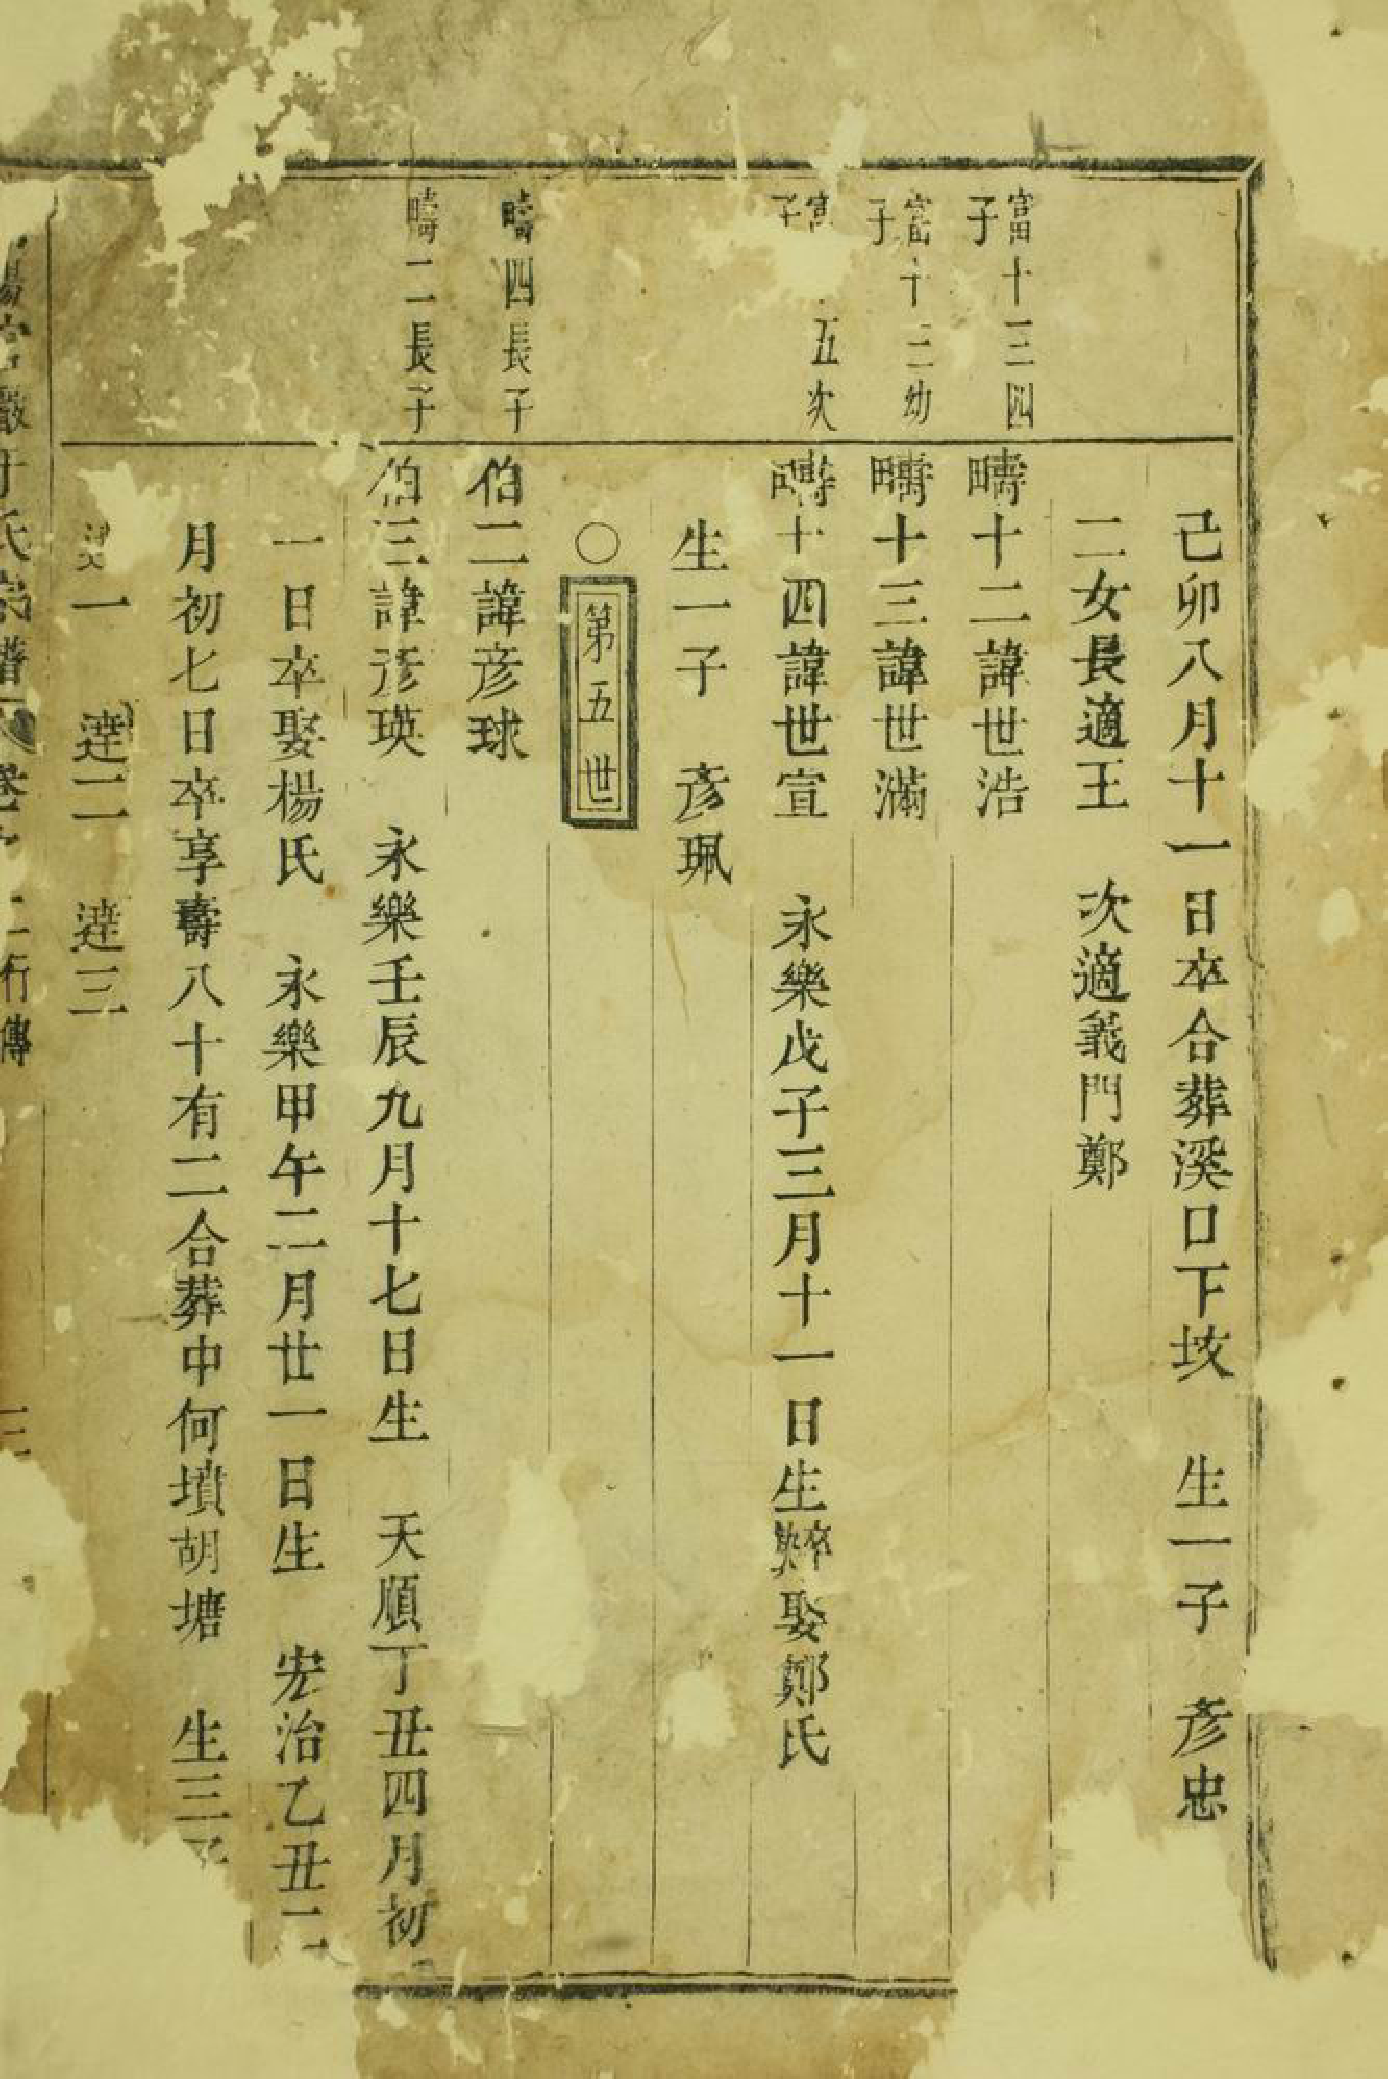 己卯八月十一日卒合葬溪口下坆　生一子　彥忠
二女長適王　次適義門鄭
富十三四子
疇十二諱世浩
富十三幼子
疇十三諱世滿
五次子
疇十四諱世宣　永樂戊子三月十一日生歿娶鄭氏
生一子　彥珮
○第五世
疇四長子
伯二諱彥球
疇二長子
伯三諱彥瑛　永樂壬辰九月十七日生　天順丁丑四月初
一日卒娶楊氏　永樂甲午二月廿一日生　宏治乙丑二
月初七日卒享壽八十有二合葬中何墳胡塘　生三子
一　達二　達三
氏宗譜
行傳